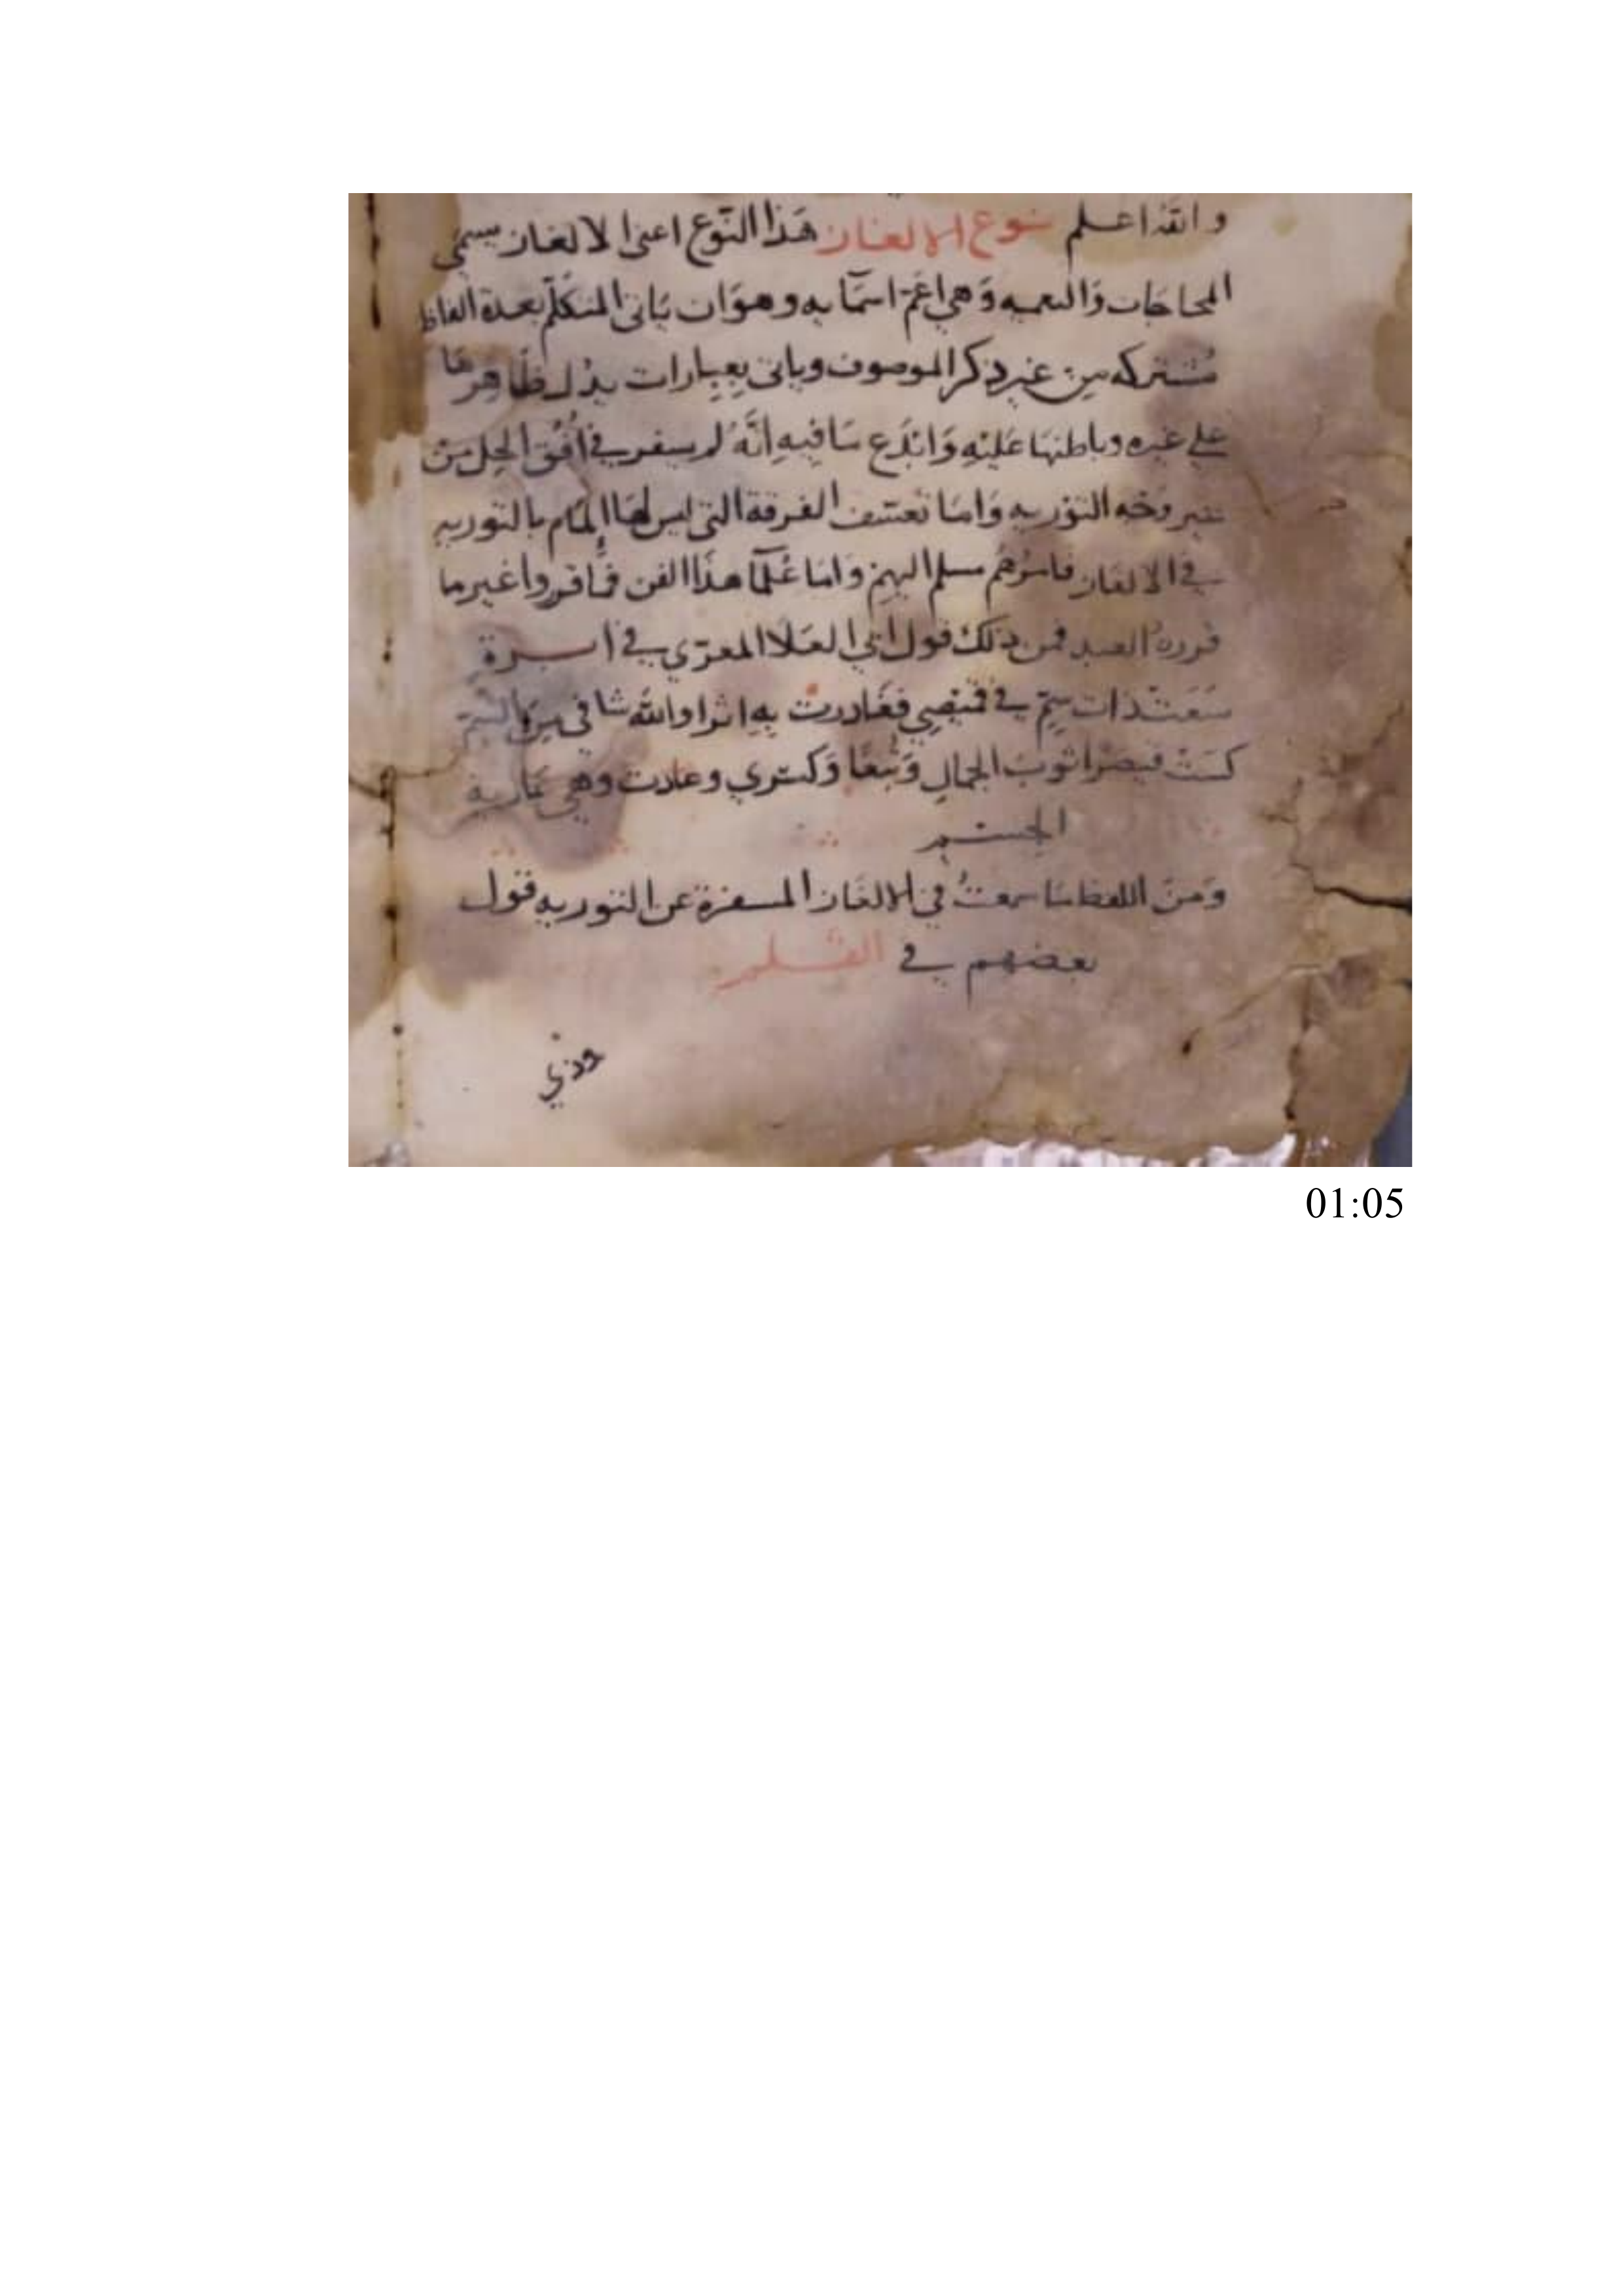 والله اعلم نوع الالغاز هذا النوع اعنى الالغاز يسمى
المحاجات والتعميه وَهي اعَمّ اسمَآيه وهوَان يَاتى المتكلّم بعدة الفاظ
مُشتركه من غير ذكر الموصوف وياتى بعِبارات يدُل ظَاهرهَا
على غيره وباطنها عَليْهِ وَابْدَع مَا فِيهِ اَنَّهُ لم يسفر في اُفُق الحل من
غير وَجْه التوْريه وَامَا تعسّف الفرقة التى ليس لهَا اِلمَام بالتوريه
في الالغاز فامرُهُم مسلم اليهِمْ وَامَا عُلمَآ هذا الفن فمَا قرروا غير ما
قرره العبد فمن ذلك قول ابي العَلا المعرّي في ابرة
سَعَتْ ذات سَمٍّ في قميْصِي فغَادرتْ بِهِ اثرا والله شافى من السّم
كسَتْ قيصَرًا ثوبَ الجمالِ وَتُبّعًا وَكسْرى وعادت وهى عَارية
الجسم
وَمن اللطف مَا سمعتُ في الالغَاز المسفرة عن التوريه قول
بعضهم في القلم
وذي
01:05